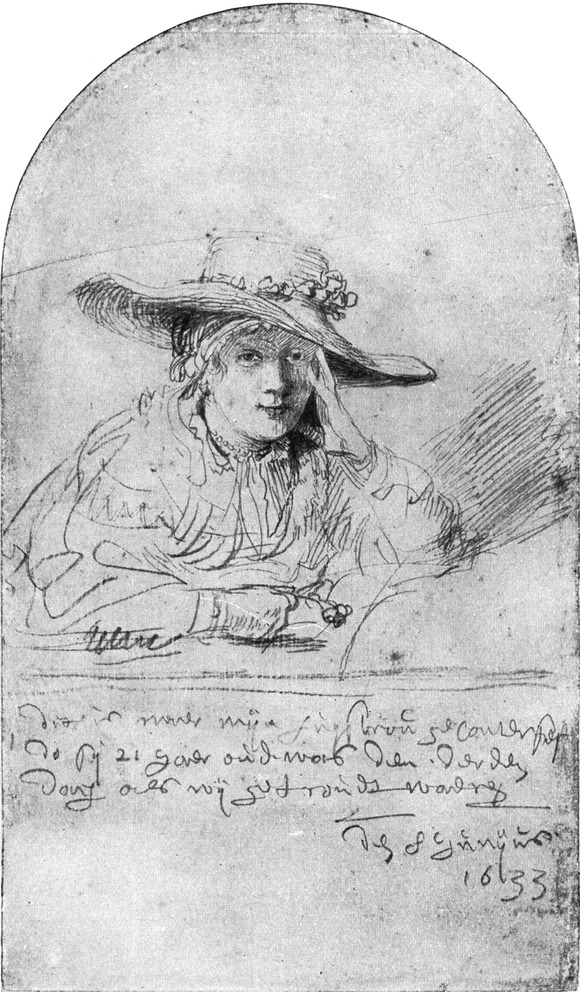 dit is naer mijn huysvrou geconterfeyt
do sij 21 jaer oud was den derden
dach als wij getroudt waeren
den 8 junijus
1633